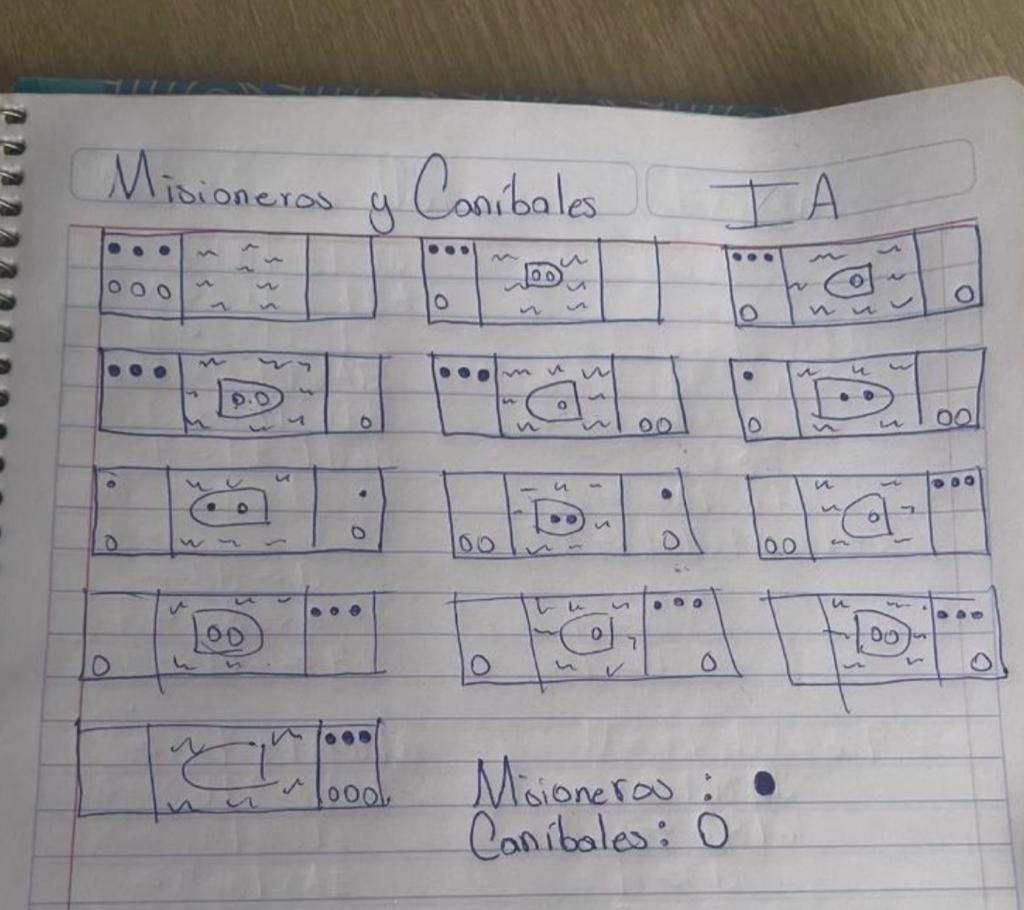 Misioneros y Caníbales IA
Misioneros : ●
Caníbales: O